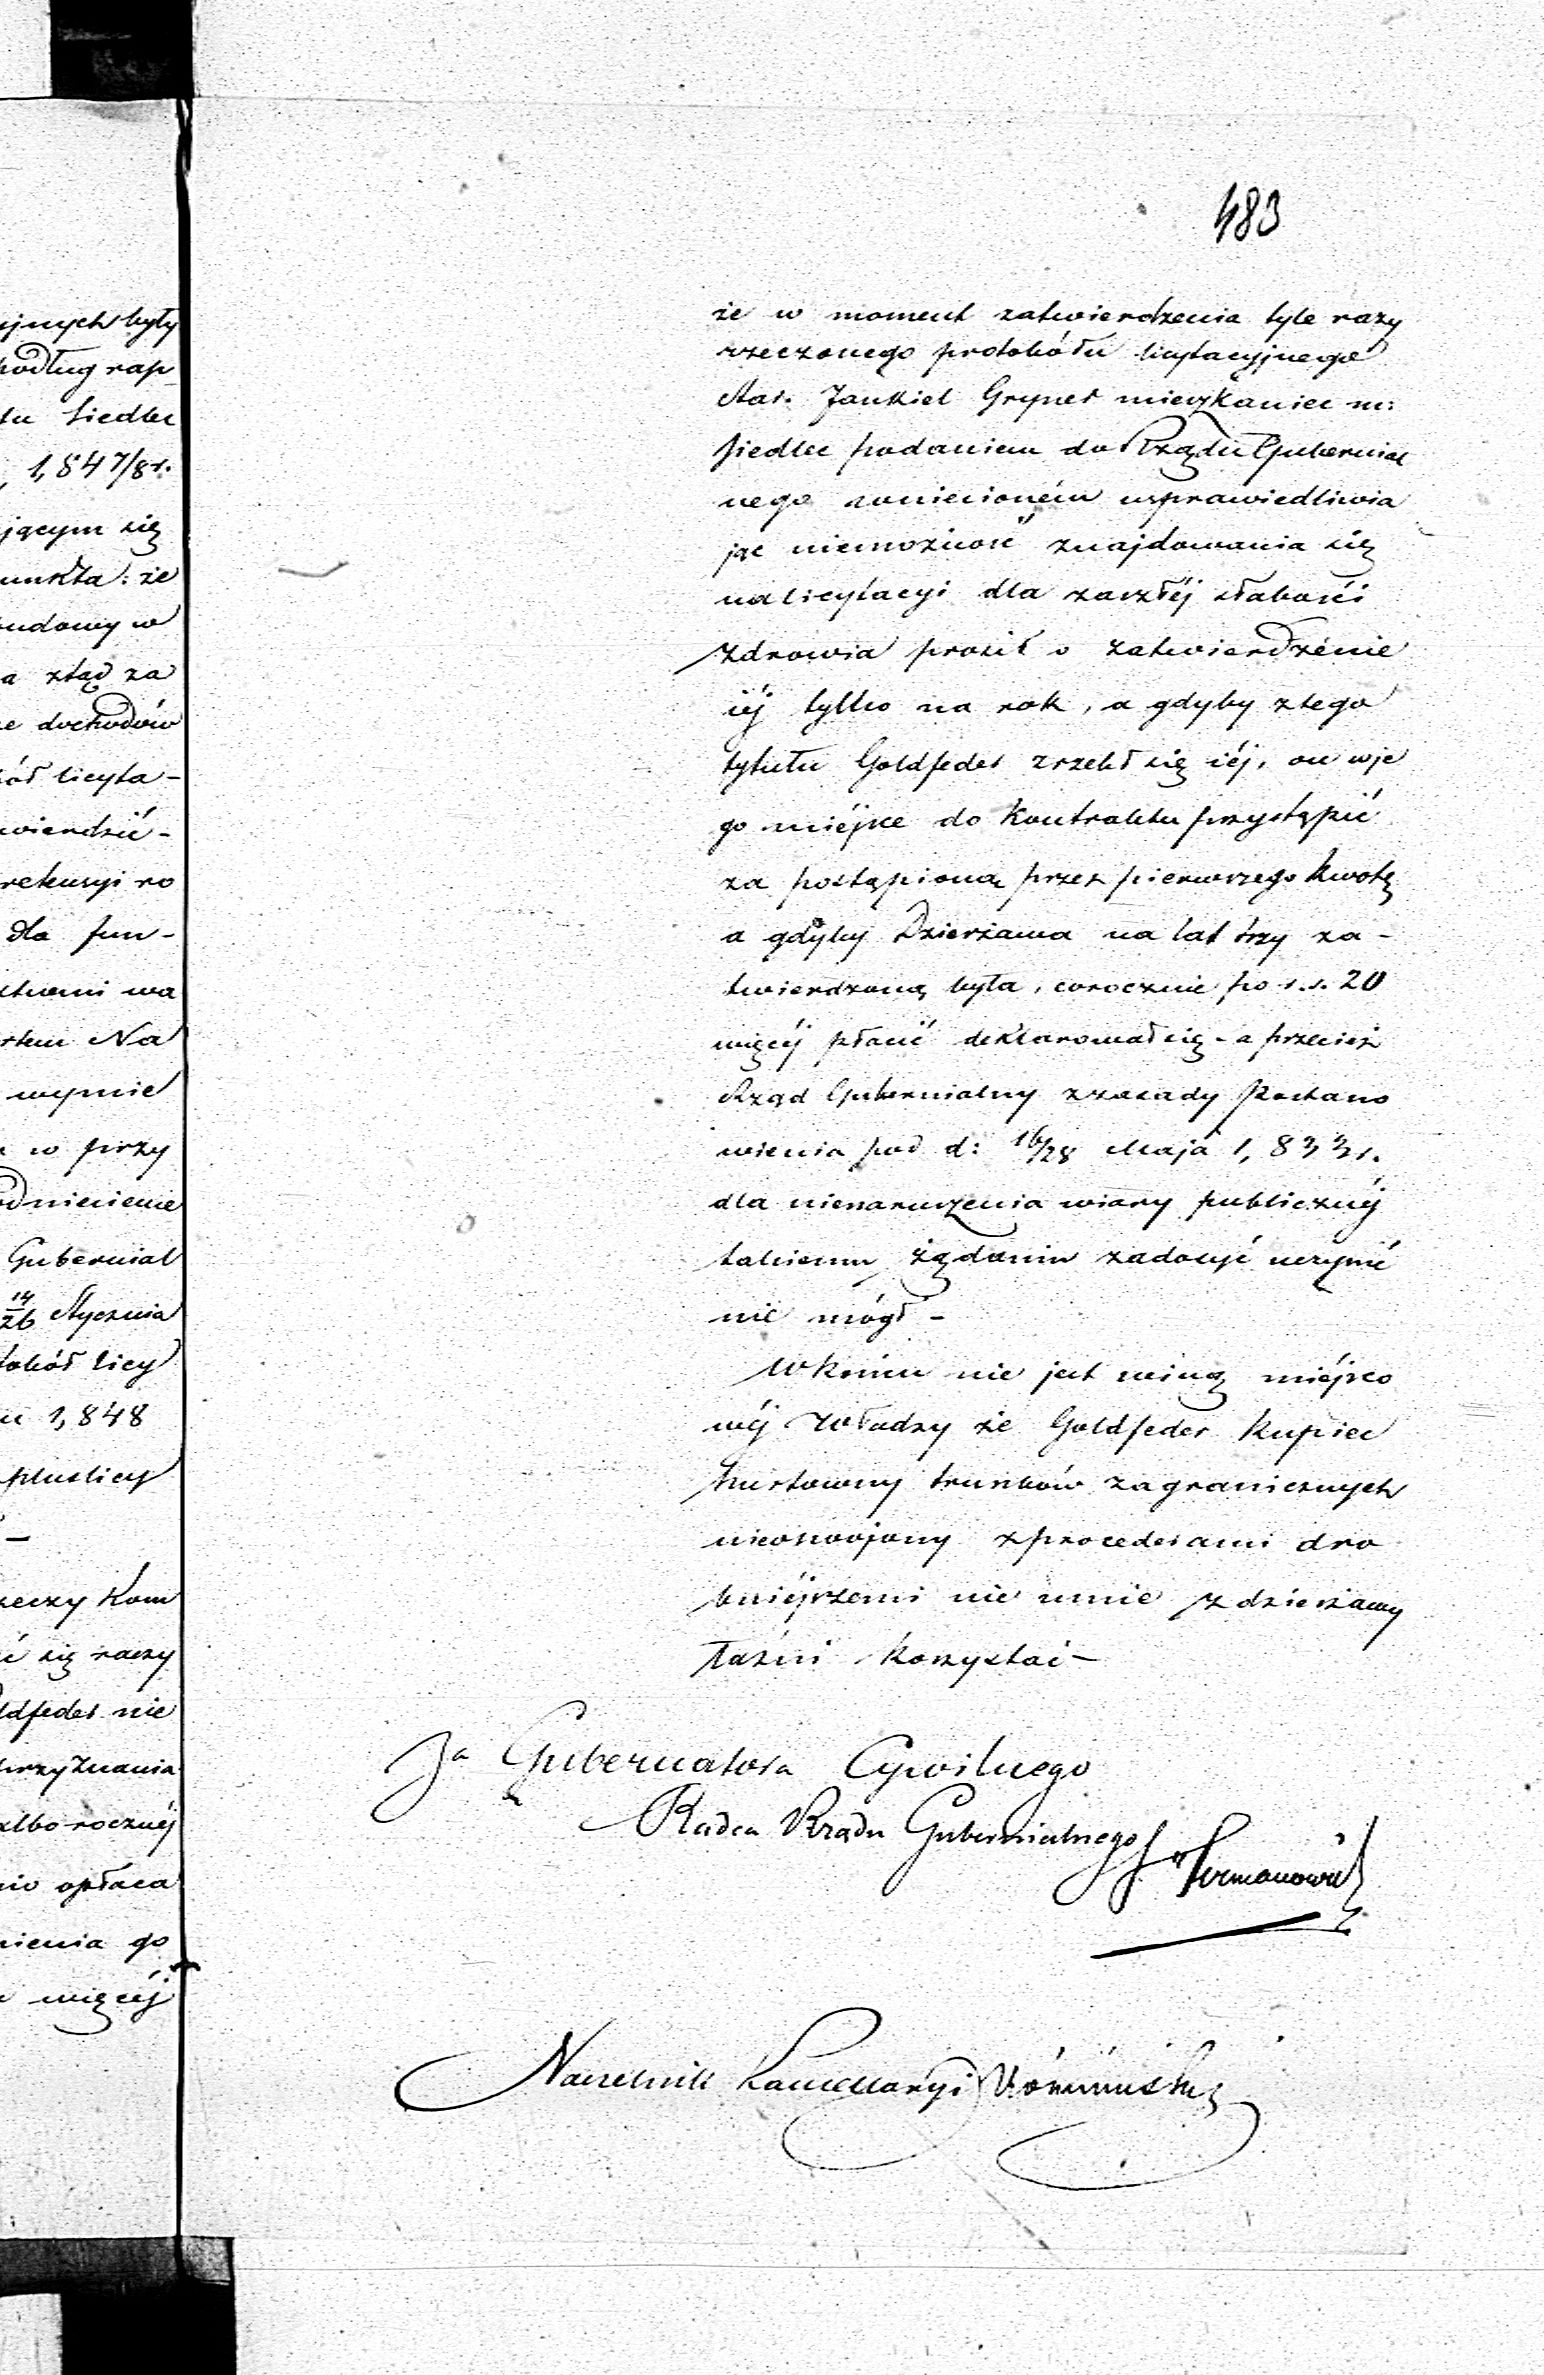 483
że w moment zatwierdzenia tyle razy
rzeczonego protokółu licytacyjnego
Star. Jankiel Gryner mieszkaniec m:
Siedlec podaniem do Rządu Gubernial
nego wniesioném usprawiedliwia
jąc niemożność znajdowania się
na licytacyi dla zaszłéj słabości
zdrowia prosił o zatwierdzénie
iéj tylko na rok, a gdyby z tego
tytułu Goldfeder zrzekł się iéj, on w je
go miéjsce do Kontraktu przystąpić
za postąpioną przez pierwszego kwotę
a gdyby Dzierżawa na lat trzy za-
twierdzoną była, corocznie po r.s. 20
więcéj płacić deklarował się - a przecież
Rząd Gubernialny z zasady Postano
wienia pod d: 16/28 Maja 1,833 r.
dla nienaruszenia wiary publicznéj
takiemu żądaniu zadosyć uczynić
nie mógł -
W końcu nie jest winą miéjsco
wéj Władzy że Goldfeder Kupiec
hurtowny trunków zagranicznych
nieoswojony z procederami dro
bniéjszemi nie umie z dzierżawy
łaźni korzystać -
Za Gubernatora Cywilnego
Radca Rządu Gubernialnego
Naczelnik Kancellaryi
yjnych były
podług rap
tu Siedlec
1,847/8 r.
jącym się
unkta: że
budowy w
a ztąd za
e dochodów
kół licyta-
wierdzić -
dla fun-
Na
w przy
Gubernial
14/26 Stycznia
tokół licy
u 1,848
plus licy
rzeczy Kom
ć się raczy
ldfeder nie
przyznania
albo roczney
nio opłaca
nienia go
więcéj